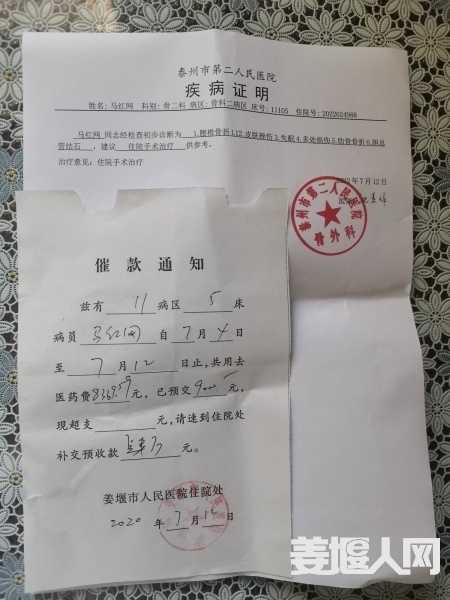 泰州市第二人民医院
疾病证明
姓名:马红网 科别:骨二科 病区:骨科二病区 床号:11105 住院号:2022024988
马红网 同志经检查初步诊断为 1.腰椎骨折L12.皮肤挫伤3.失眠4.多处挫伤5.肋骨骨折6.胆总
管结石,建议 住院手术治疗 供参考。
治疗意见:住院手术治疗
年7月12日
泰州市第二人民医院
骨外科
催款通知
兹有 11 病区 5 床
病员 马红网 自 7 月 4 日
至 7 月 12 日止,共用去
医药费8369.59元,已预交 元,
现超支 元,请速到住院处
补交预收款 元。
姜堰市人民医院住院处
2020 年 7 月 12 日
姜堰人网